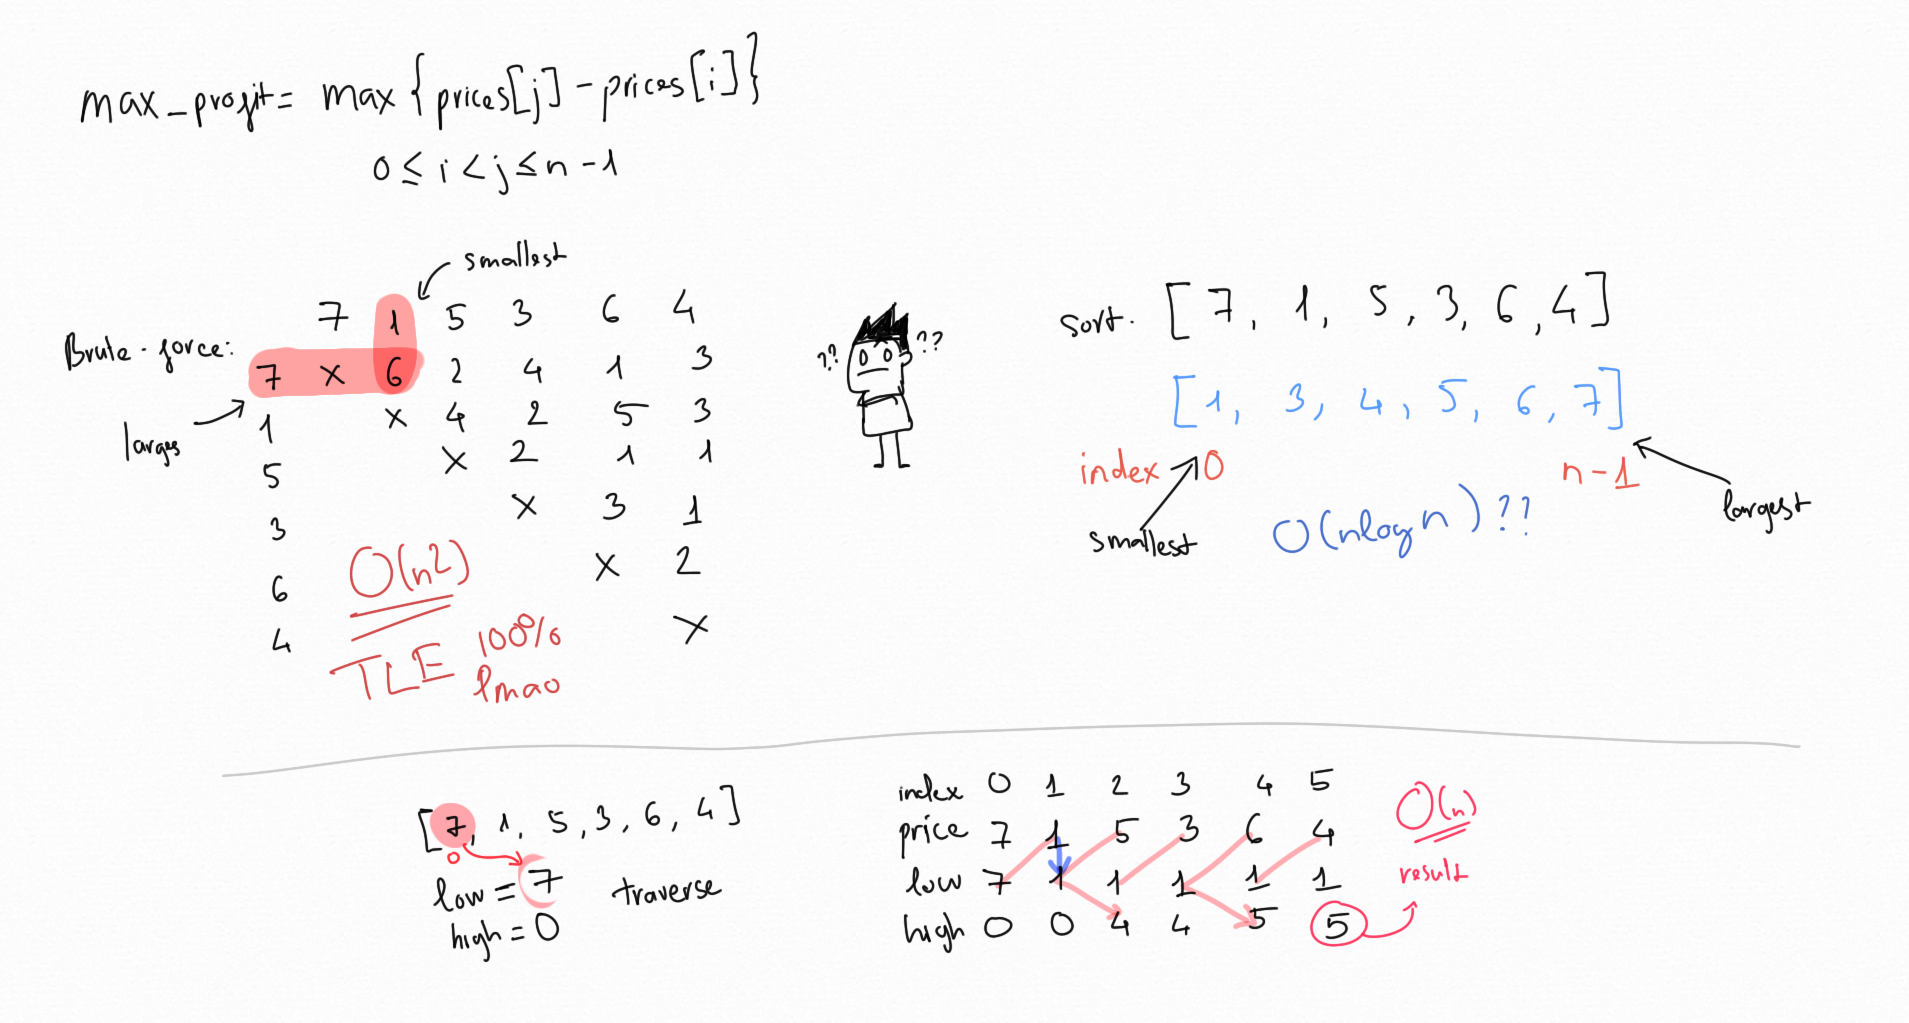 max_profit = max { prices[j] - prices[i] }
0 ≤ i < j ≤ n - 1
smallest
Brute-force:
7 1 5 3 6 4
7 x 6 2 4 1 3
larges
1 x 4 2 5 3
5 x 2 1 1
3 x 3 1
6 x 2
4 x
O(n2)
TLE 100%
lmao
?? ??
sort. [7, 1, 5, 3, 6, 4]
[1, 3, 4, 5, 6, 7]
index 0 n-1
smallest
largest
O(nlogn)??
[7, 1, 5, 3, 6, 4]
0
low = 7 traverse
high = 0
index 0 1 2 3 4 5
price 7 1 5 3 6 4
low 7 1 1 1 1 1
high 0 0 4 4 5 5
O(n)
result